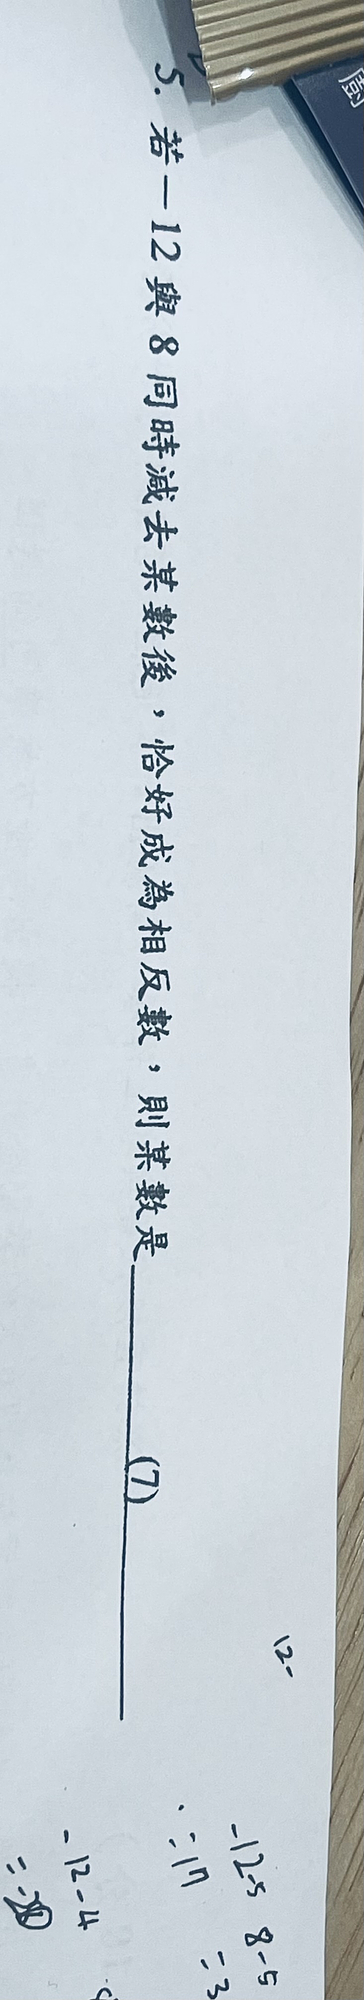 5. 若－12 與 8 同時減去某數後，恰好成為相反數，則某數是 (7)
12-
-12-5 8-5
=17 =3
-12-4